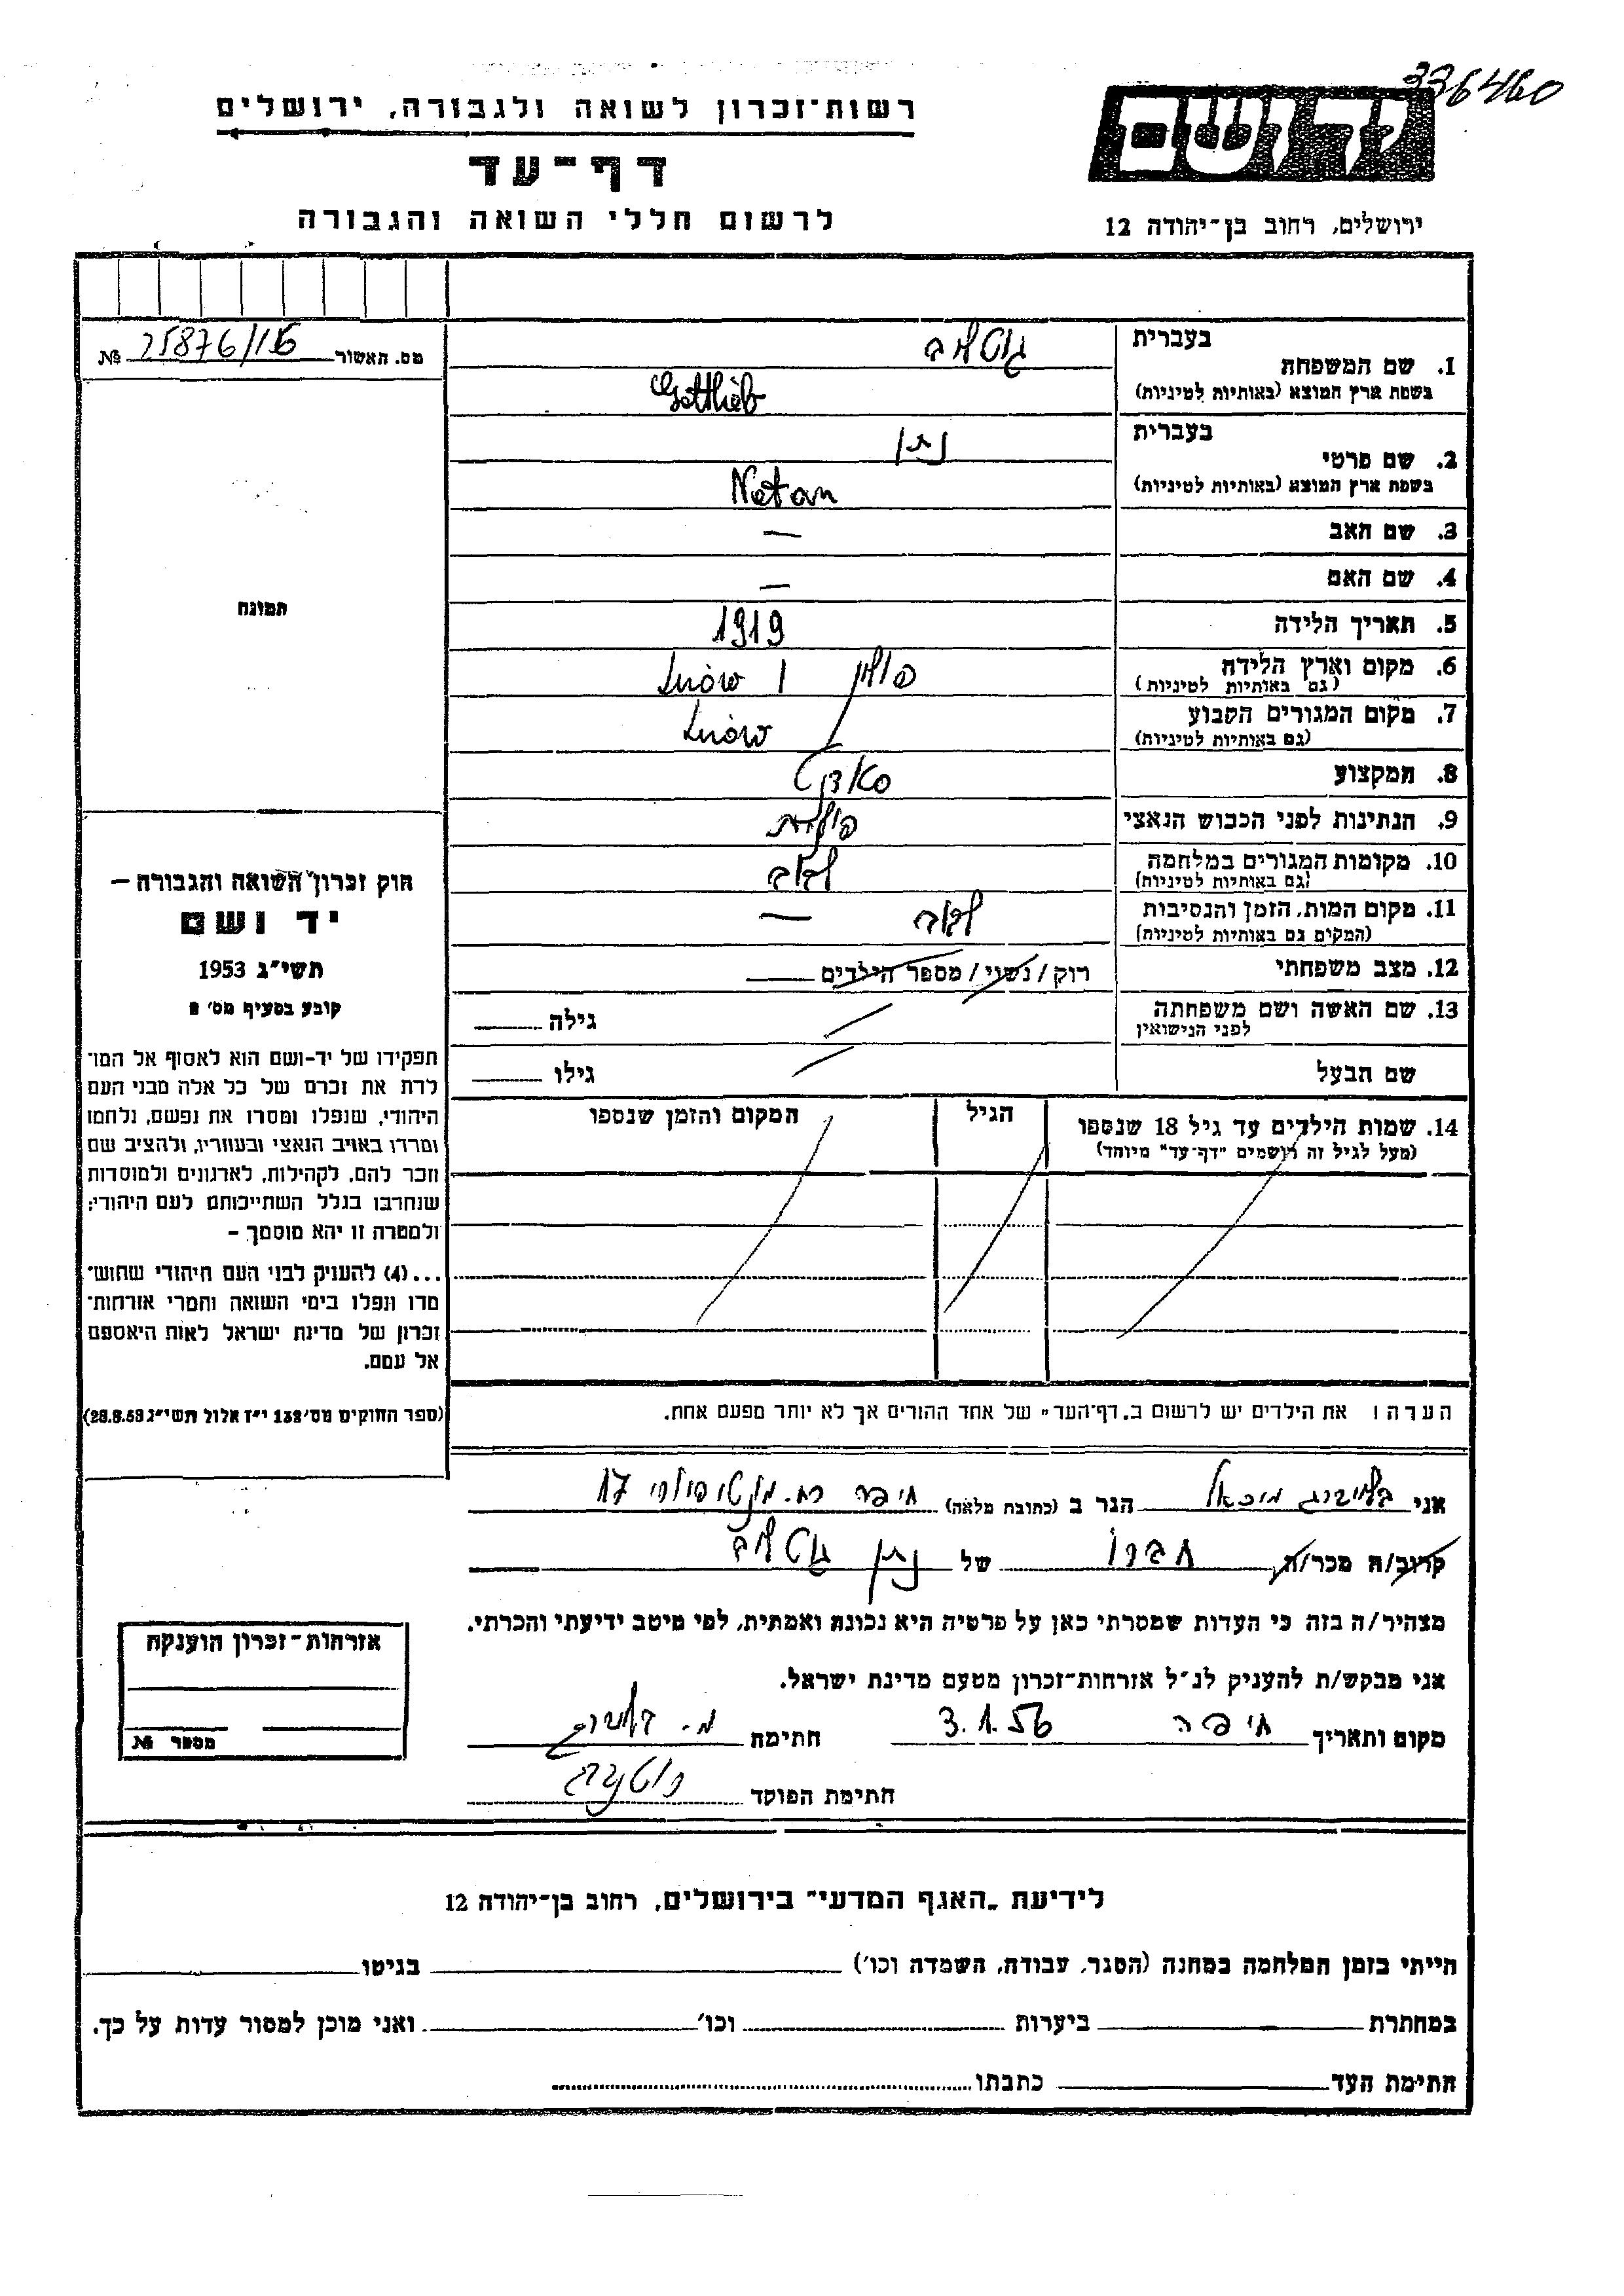 336460
רשות־זכרון לשואה ולגבורה, ירושלים
דף־עד
לרשום חללי השואה והגבורה
יד ושם
ירושלים, רחוב בן־יהודה 12
מס. האשור 25876/156 №
תמונה
חוק זכרון השואה והגבורה —
יד ושם
תשי״ג 1953
קובע בסעיף מס׳ 2
תפקידו של יד-ושם הוא לאסוף אל המו־
לדת את זכרם של כל אלה מבני העם
היהודי, שנפלו ומסרו את נפשם, נלחמו
ומרדו באויב הנאצי ובעוזריו, ולהציב שם
וזכר להם, לקהילות, לארגונים ולמוסדות
שנחרבו בגלל השתייכותם לעם היהודי;
ולמטרה זו יהא מוסמך —
...(4) להעניק לבני העם היהודי שהוש־
מדו ונפלו בימי השואה והמרי אזרחות־
זכרון של מדינת ישראל לאות היאספם
אל עמם.
(ספר החוקים מס׳ 132 י״ז אלול תשי״ג 28.8.53)
1. שם המשפחה
בעברית גוטליב
בשפת ארץ המוצא (באותיות לטיניות) Gottlieb
2. שם פרטי
בעברית נתן
בשפת ארץ המוצא (באותיות לטיניות) Natan
3. שם האב —
4. שם האם —
5. תאריך הלידה 1919
6. מקום וארץ הלידה (גם באותיות לטיניות) פולין / Lwów
7. מקום המגורים הקבוע (גם באותיות לטיניות) Lwów
8. המקצוע
9. הנתינות לפני הכבוש הנאצי פולנית
10. מקומות המגורים במלחמה (גם באותיות לטיניות) לבוב
11. מקום המות, הזמן והנסיבות (המקום גם באותיות לטיניות) לבוב —
12. מצב משפחתי רוק / נשוי / מספר הילדים
13. שם האשה ושם משפחתה לפני הנישואין גילה
שם הבעל גילו
14. שמות הילדים עד גיל 18 שנספו (מעל לגיל זה רושמים "דף־עד" מיוחד) הגיל המקום והזמן שנספו
הערה: את הילדים יש לרשום ב„דף־העד" של אחד ההורים אך לא יותר מפעם אחת.
אני מיכאל הגר ב (כתובת מלאה) חיפה רח. 17
קרוב/ה מכר/ה חברו של נתן גוטליב
מצהיר/ה בזה כי העדות שמסרתי כאן על פרטיה היא נכונה ואמתית, לפי מיטב ידיעתי והכרתי.
אני מבקש/ת להעניק לנ״ל אזרחות־זכרון מטעם מדינת ישראל.
מקום ותאריך חיפה 3.1.56 חתימה
חתימת הפוקד
אזרחות־זכרון הוענקה
מספר №
לידיעת „האגף המדעי" בירושלים, רחוב בן־יהודה 12
הייתי בזמן המלחמה במחנה (הסגר, עבודה, השמדה וכו׳) בגיטו
במחתרת ביערות וכו׳ ואני מוכן למסור עדות על כך.
חתימת העד כתבתו